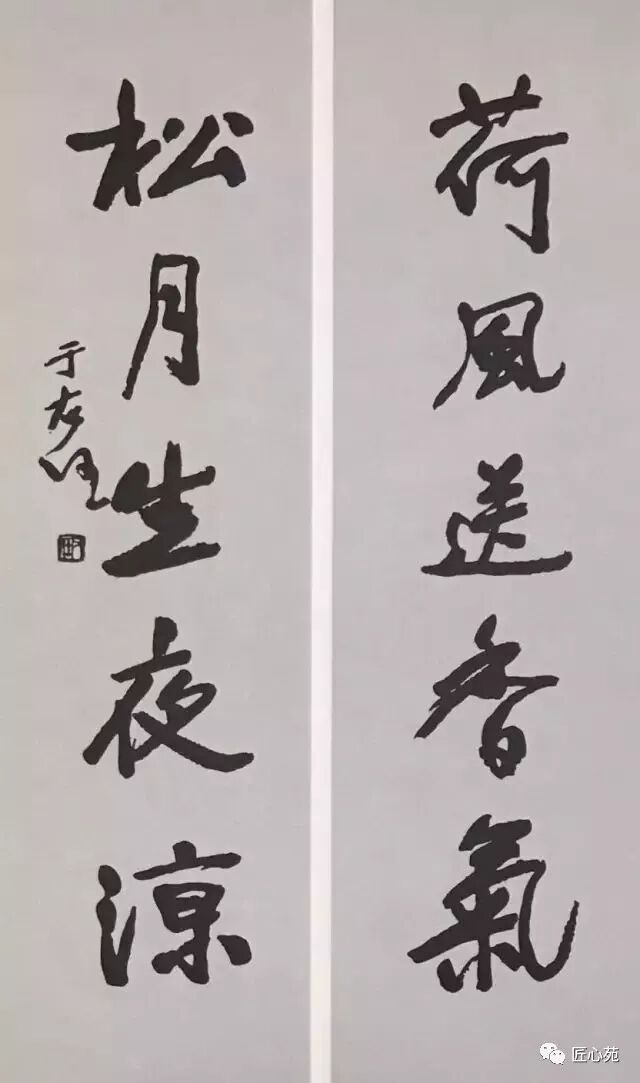 荷風送香氣
松月生夜涼
于右任
匠心苑